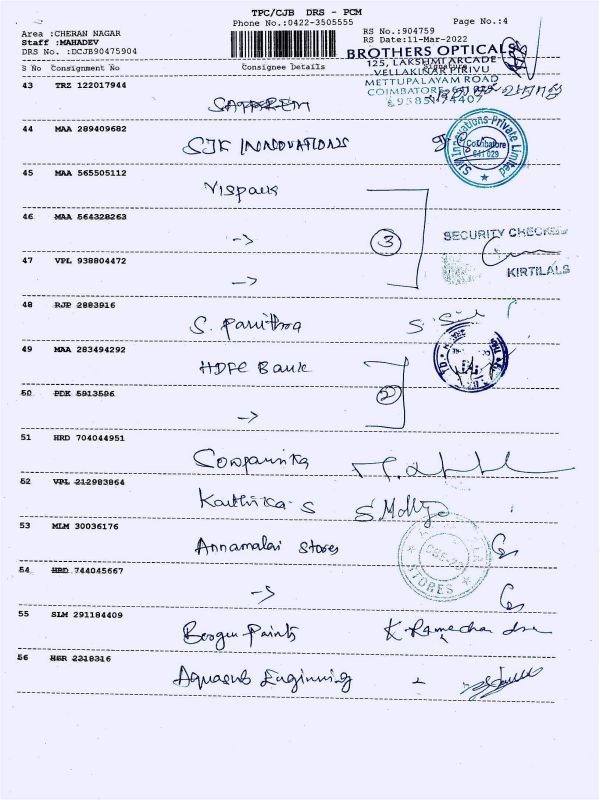 TPC/CJB DRS - PCM
Phone No.:0422-3505555 Page No.:4
Area :CHERAN NAGAR RS No.:904759
Staff :MAHADEV RS Date:11-Mar-2022
DRS No. :DCJB90475904
BROTHERS OPTICALS
125, LAKSHMI ARCADE
VELLAKINAR PIRIVU
METTUPALAYAM ROAD
COIMBATORE
S No Consignment No Consignee Details Signature
43 TRZ 122017944
44 MAA 289409682
SJK INNOVATIONS
SJK Innovations Private Limited
Coimbatore
641 029
45 MAA 565505112
Vispark
46 MAA 564328263
3
SECURITY CHECKED
47 VPL 938804472
KIRTILALS
48 RJP 2883916
S. Pavithra
49 MAA 283494292
HDFC Bank
50 PDK 5913596
2
51 HRD 704044951
Sowparnika
52 VPL 212983864
Karthika S
53 MLM 30036176
Annamalai Stores
STORES
54 HRD 744045667
55 SLM 291184409
Berger Paints K. Ramachandra
56 HSR 2318316
Aquasub Enginning